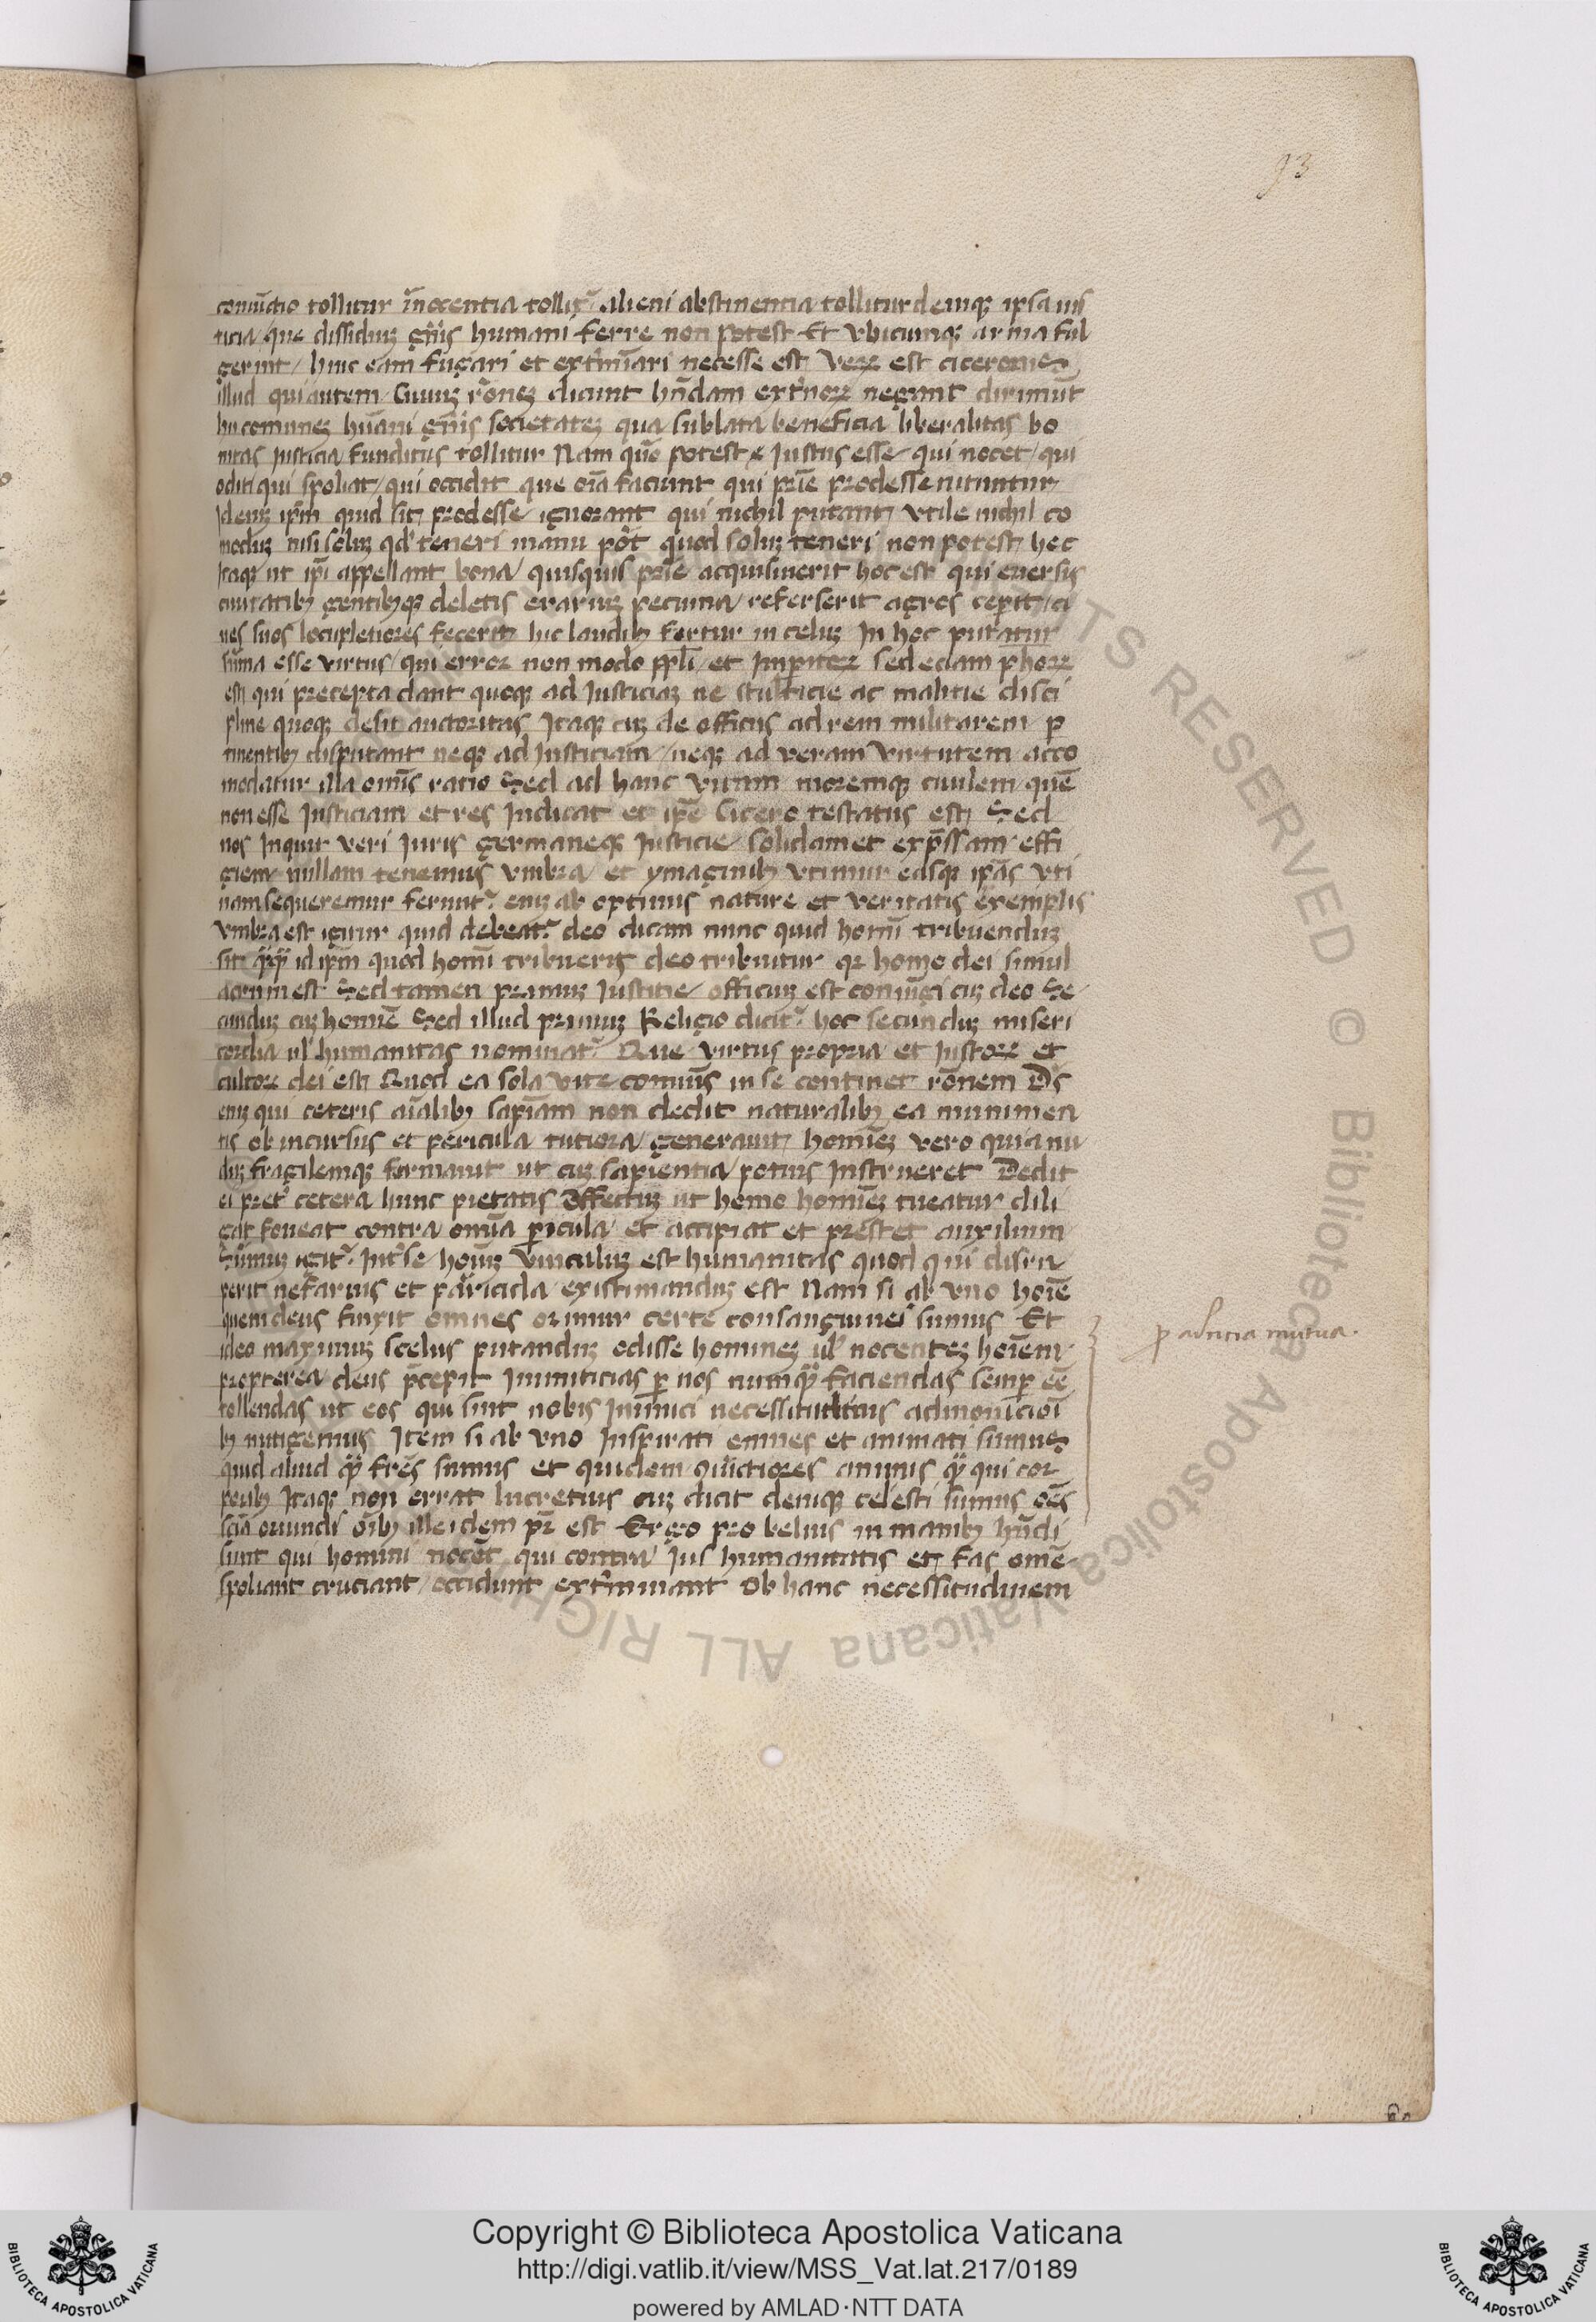 93
coniũctio tollitur ĩnocentia tollit᷑ alieni abstinentia tollitur deniqꝫ ipsa ius
ticia que dissidiuꝫ gñis humani ferre non potest Et vbicunqꝫ arma ful
gerint / hinc eam fugari et ext̾miari necesse est Veꝝ est ciceronis
illud qui autem Ciuiuꝫ rõneꝫ dicunt hñdam ext̾noꝝ negant dirimũt
hii comuneꝫ hũani gñis societateꝫ qua sublata beneficia liberalitas bo
nitas Justicia funditus tollitur Nam quõ potest Justus esse qui nocet / qui
odit / qui spoliat / qui occidit que oĩa faciunt qui pr̃ie prodesse nituntur
idenꝫ ip̃m quid sit prodesse ignorant qui nichil putant vtile nichil co
moduꝫ nisi soluꝫ qd̾ teneri manu põt quod soluꝫ teneri non potest hec
Itaqꝫ ut ip̃i appellant bona quisquis pr̃ie acquisiuerit hoc est qui euersis
ciuitatibꝫ gentibꝫqꝫ deletis erariuꝫ pecunia referserit agros ceperit / ci
ues suos locupletiores fecerit hic laudibꝫ fertur in celuꝫ In hoc putatur
sũma esse virtus / qui error non modo ppl̃i et Imperitoꝝ sed eciam phoꝝ
est qui precepta dant quoqꝫ ad Justiciaꝫ ne stulticie ac malitie disci
pline quoqꝫ desit auctoritas Itaqꝫ cuꝫ de officiis ad rem militarem ꝑ
tinentibꝫ disputant neqꝫ ad Justiciam / neqꝫ ad veram virtutem acco
modatur illa omĩs ratio Sed ad hanc vitam moremqꝫ ciuilem quẽ
non esse Justiciam et res Indicat et ip̃e Cicero testatus est Sed
nos Inquit veri Juris germaneqꝫ Justicie solidam et exp̃ssam effi
giem nullam tenemus vmbra et ymaginibꝫ vtimur easqꝫ ip̃as vti
nam sequeremur ferunt᷑ eniꝫ ab optimis nature et veritatis exemplis
vmbra est igitur quid debeat᷑ deo dicam nunc quid homĩ tribuenduꝫ
sit q̃q̃ id ip̃m quod homĩ tribueris deo tribuitur qꝛ homo dei simul
acrum est Sed tamen primuꝫ Justitie officiuꝫ est coniũgi cuꝫ deo Se
cunduꝫ cuꝫ homiẽ Sed illud primuꝫ Religio dicit᷑ hoc secunduꝫ miseri
cordia ul̾ humanitas nominat᷑ Que virtus propria et Justoꝝ et
cultoꝝ dei est Quod ea sola vite comũis in se continet rõnem D̃s
eniꝫ qui ceteris aĩalibꝫ sapiam non dedit naturalibꝫ ea munimen
tis ob incursus et pericula tutiora generauit homiẽꝫ vero quia nu
duꝫ fragilemqꝫ formauit ut cuꝫ sapientia potius Instrueret Dedit
ei pret̾ cetera hunc pietatis Affectuꝫ ut homo homiẽꝫ tueatur dili
gat foueat contra omĩa ꝑicula et accipiat et prestet auxilium
Sũmuꝫ igit᷑ Int̾se hoĩuꝫ vinculuꝫ est humanitas quod qui disru
perit nefarius et paricida existimanduꝫ est Nam si ab vno hoĩe
quem deus finxit omnes orimur certe consanguinei sumus Et
ideo maximuꝫ scelus putanduꝫ odisse homineꝫ ul̾ nocenteꝫ hoĩem
propterea deus p̃cepit Inimiticias ꝑ nos nunq̃ faciendas semꝑ eẽ
tollendas ut eos qui sint nobis Inimici necessitudinis admonicioĩ
bꝫ mitigemus Item si ab vno Inspirati omnes et animati sumus
quid aliud q̃ fr̃es sumus et quidem ꝯiũctiores animis q̃ qui cor
poribꝫ Itaqꝫ non errat lucretius cuꝫ dicit deniqꝫ celesti sumus oẽs
sẽia oriundi oĩbꝫ ille idem pr̃ est Ergo pro beluis in manibꝫ hñdi
sunt qui homini nocẽt qui contra Jus humanitatis et fas omẽ
spoliant cruciant / occidunt ext̾minant Ob hanc necessitudinem
Copyright © Biblioteca Apostolica Vaticana
http://digi.vatlib.it/view/MSS_Vat.lat.217/0189
powered by AMLAD·NTT DATA
BIBLIOTECA APOSTOLICA VATICANA
BIBLIOTECA APOSTOLICA VATICANA
© Biblioteca Apostolica Vaticana ALL RIGHTS RESERVED